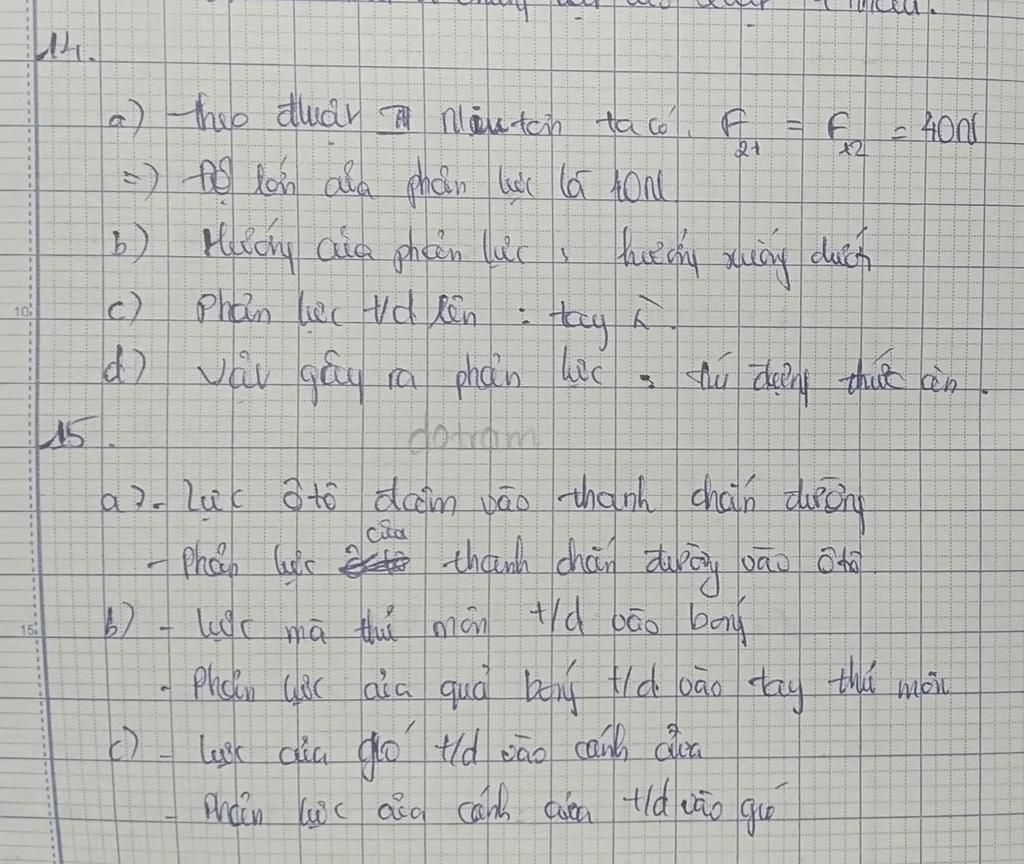 14.
a) theo định luật III Niu tơn ta có. F21 = F12 = 40N
=> Độ lớn của phản lực là 40N
b) Hướng của phản lực : hướng xuống dưới
c) Phản lực t/d lên : tay
d) Vật gây ra phản lực : túi đựng thức ăn.
15.
dotram
a) - Lực ôtô đâm vào thanh chắn đường
- Phản lực của thanh chắn đường vào ôtô
b) - lực mà thủ môn t/d vào bóng
- Phản lực của quả bóng t/d vào tay thủ môn
c) - lực của gió t/d vào cánh cửa
- Phản lực của cánh cửa t/d vào gió